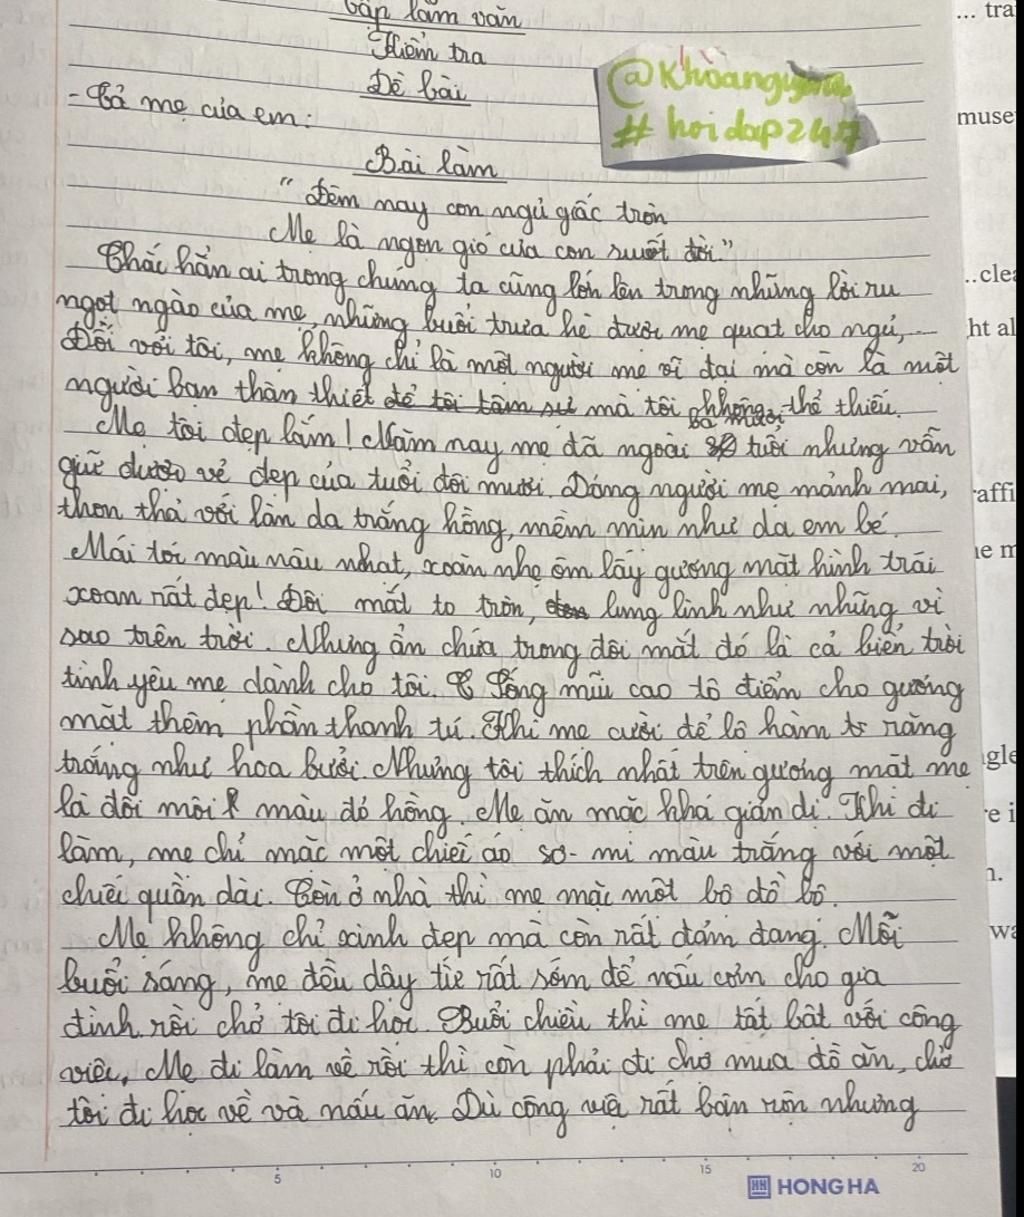 Tập làm văn
Kiểm tra
Đề bài
- Tả mẹ của em:
@Khoanguyen
# hoidap247
Bài làm
" Đêm nay con ngủ giấc tròn
Mẹ là ngọn gió của con suốt đời."
Chắc hẳn ai trong chúng ta cũng lớn lên trong những lời ru
ngọt ngào của mẹ, những buổi trưa hè được mẹ quạt cho ngủ,...
Đối với tôi, mẹ không chỉ là một người mẹ vĩ đại mà còn là một
người bạn thân thiết để tôi tâm sự mà tôi không thể thiếu.
Mẹ tôi đẹp lắm! Năm nay mẹ đã ngoài ba mươi tuổi nhưng vẫn
giữ được vẻ đẹp của tuổi đôi mươi. Dáng người mẹ mảnh mai,
thon thả với làn da trắng hồng, mềm mịn như da em bé.
Mái tóc màu nâu nhạt, xoăn nhẹ ôm lấy gương mặt hình trái
xoan rất đẹp! Đôi mắt to tròn, lung linh như những vì
sao trên trời. Nhưng ẩn chứa trong đôi mắt đó là cả biển trời
tình yêu mẹ dành cho tôi. Sống mũi cao tô điểm cho gương
mặt thêm phần thanh tú. Khi mẹ cười để lộ hàm răng
trắng như hoa bưởi. Nhưng tôi thích nhất trên gương mặt mẹ
là đôi môi màu đỏ hồng. Mẹ ăn mặc khá giản dị. Khi đi
làm, mẹ chỉ mặc một chiếc áo sơ-mi màu trắng với một
chiếc quần dài. Còn ở nhà thì mẹ mặc một bộ đồ bộ.
Mẹ không chỉ xinh đẹp mà còn rất đảm đang. Mỗi
buổi sáng, mẹ đều dậy từ rất sớm để nấu cơm cho gia
đình rồi chở tôi đi học. Buổi chiều thì mẹ tất bật với công
việc. Mẹ đi làm về rồi thì còn phải đi chợ mua đồ ăn, chở
tôi đi học về và nấu ăn. Dù công việc rất bận rộn nhưng
5 10 15 20
HH HONG HA
... tra
muse
..clea
ht al
raffi
ne m
gle
e i
n.
wa